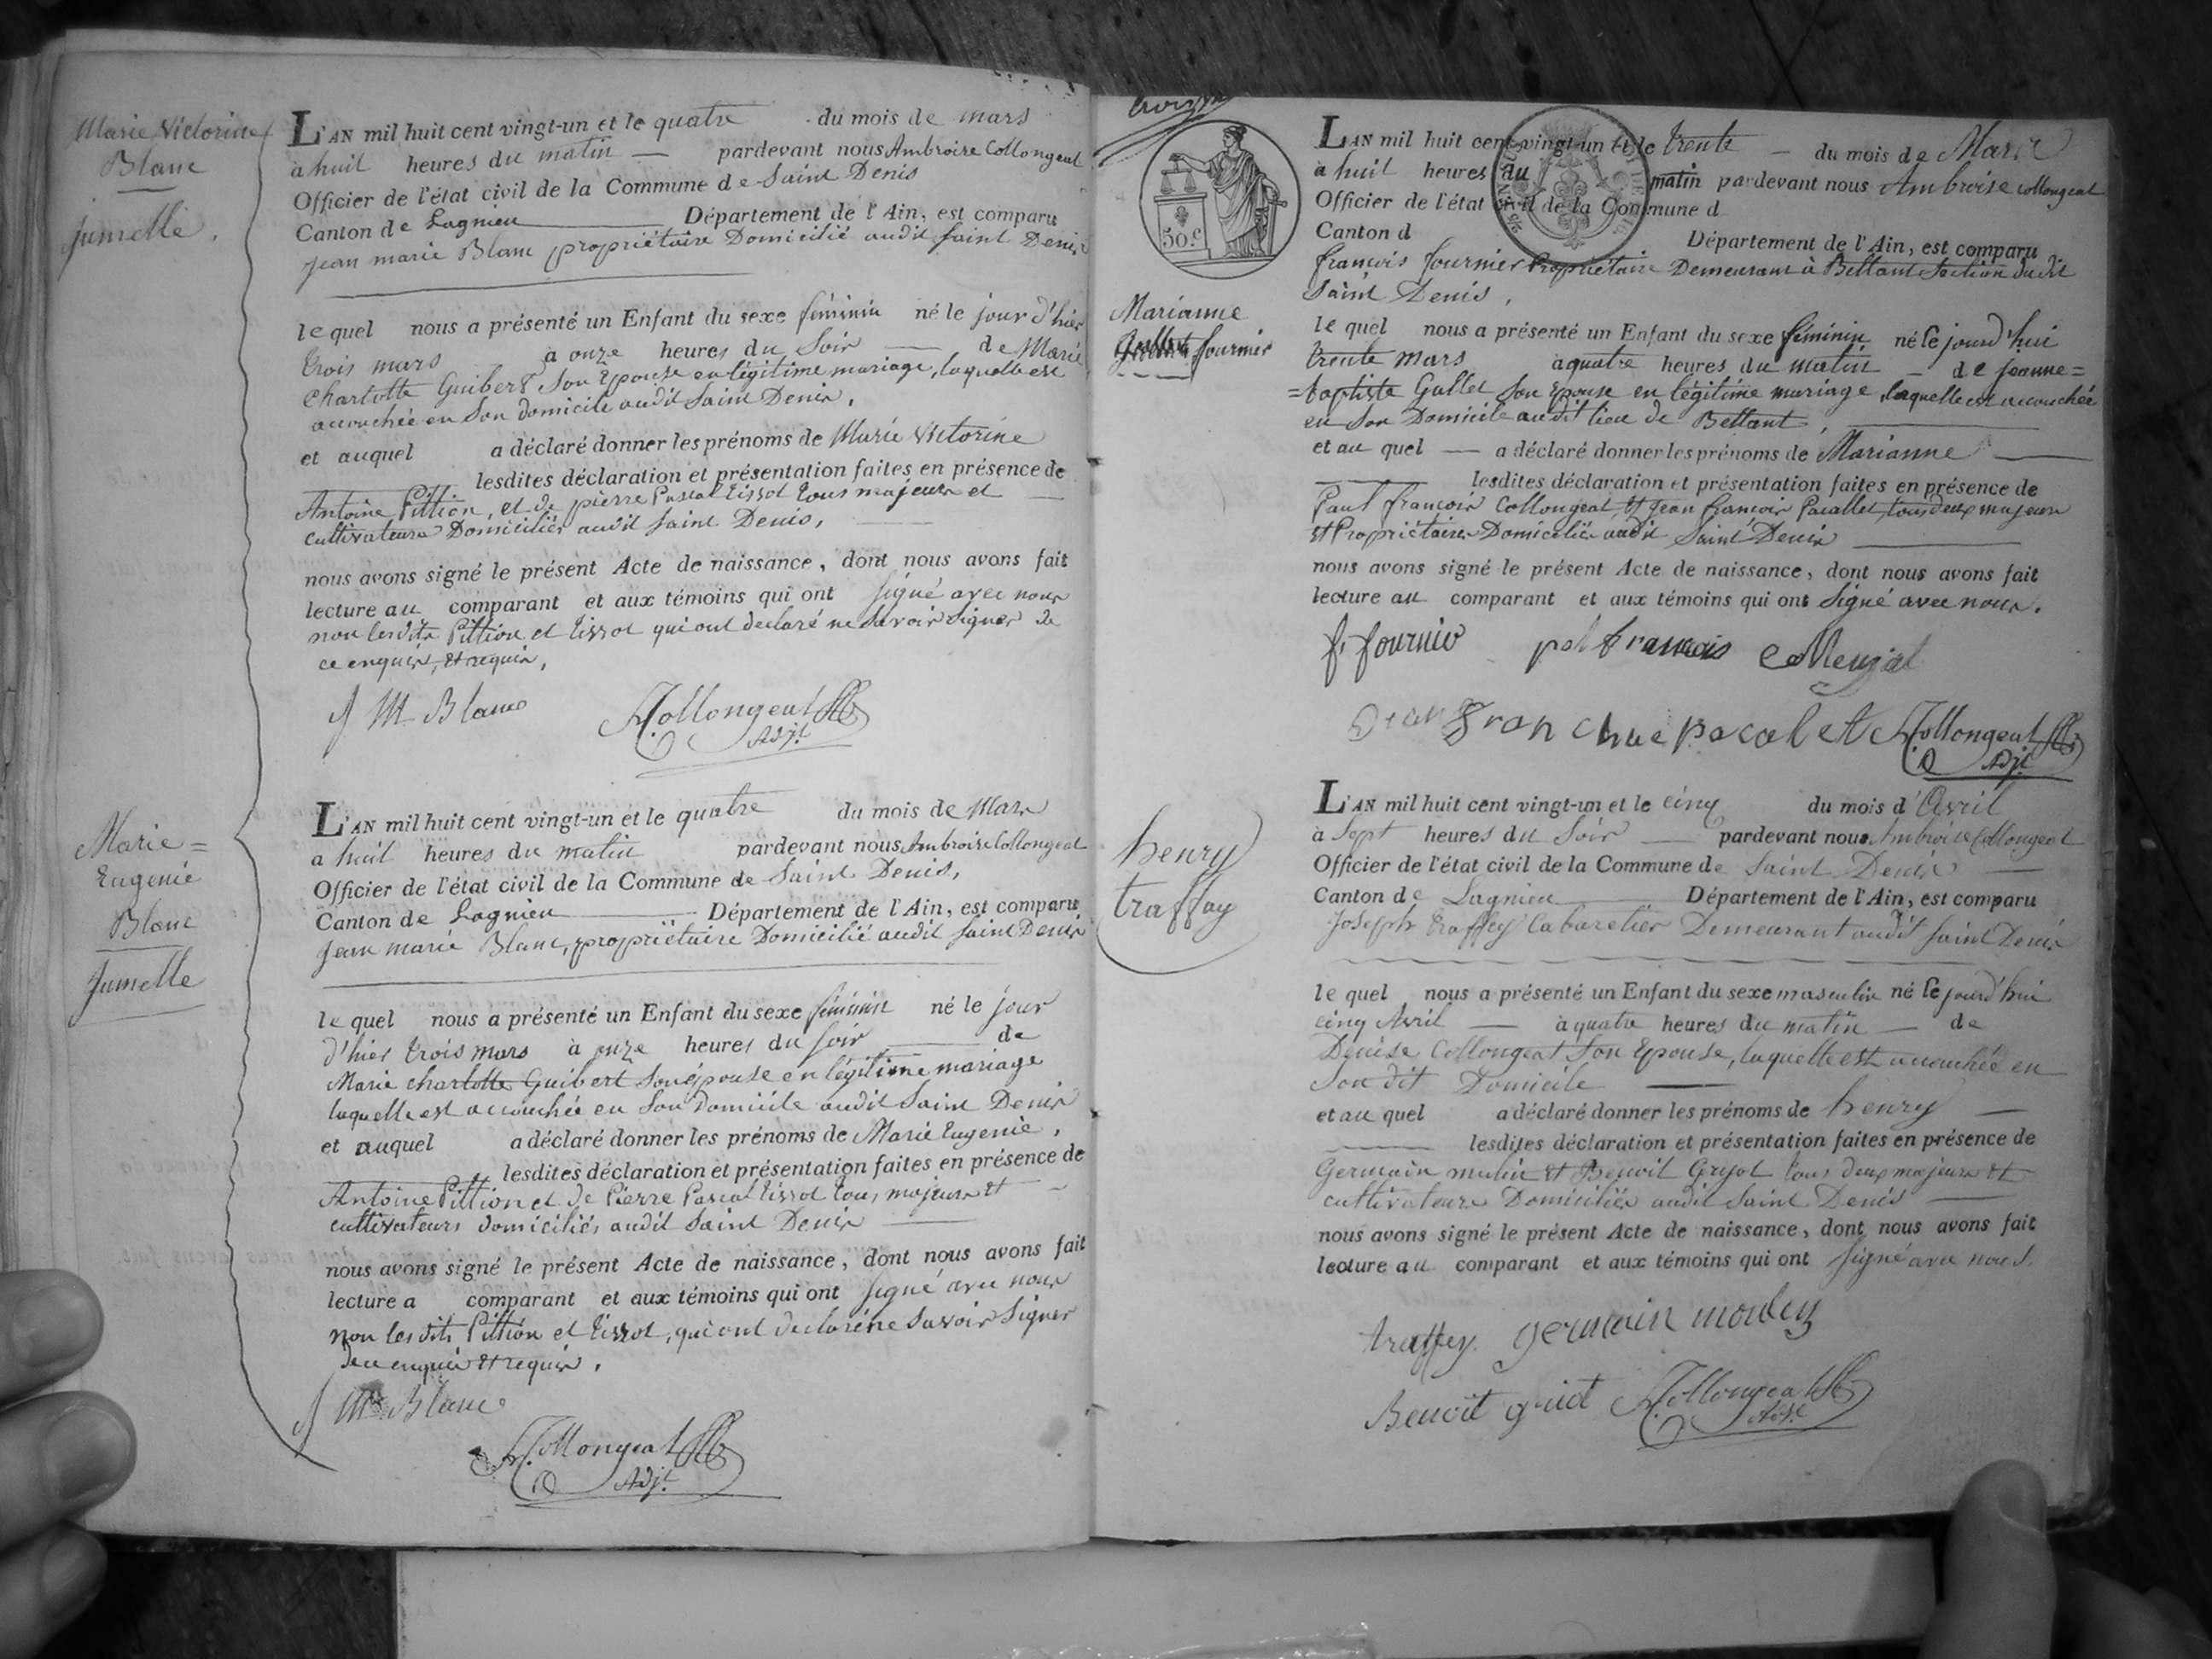 Marie Victorine
Blanc
jumelle.
L'AN mil huit cent vingt-un et le quatre du mois de mars
à huit heures du matin — pardevant nous Ambroise Collongeat
Officier de l'état civil de la Commune de Saint Denis
Canton de Lagnieu Département de l'Ain, est comparu
Jean marie Blanc propriétaire Domicilié audit Saint Denis
le quel nous a présenté un Enfant du sexe féminin né le jour d'hier
trois mars à onze heures du Soir — de Marie
Charlotte Guibert Son Epouse en légitime mariage, laquelle est
accouchée en Son domicile audit Saint Denis,
et auquel a déclaré donner les prénoms de Marie Victorine
lesdites déclaration et présentation faites en présence de
Antoine Pittion, et de pierre Pascal Tissot tous majeurs et
cultivateurs Domiciliés audit Saint Denis,
nous avons signé le présent Acte de naissance, dont nous avons fait
lecture au comparant et aux témoins qui ont signé avec nous
non lesdits Pittion et Tissot qui ont declaré ne Savoir Signer de
ce enquis, et requis,
J M Blanc
A. Collongeat
Adjt
Marie=
Eugenie
Blanc
Jumelle
L'AN mil huit cent vingt-un et le quatre du mois de Mars
a huit heures du matin pardevant nous Ambroise Collongeat
Officier de l'état civil de la Commune de Saint Denis,
Canton de Lagnieu — Département de l'Ain, est comparu
Jean marie Blanc, propriétaire Domicilié audit Saint Denis
le quel nous a présenté un Enfant du sexe féminin né le jour
d'hier trois mars à onze heures du Soir — de
Marie charlotte Guibert Son épouse en légitime mariage
laquelle est accouchée en Son Domicile audit Saint Denis
et auquel a déclaré donner les prénoms de Marie Eugenie,
lesdites déclaration et présentation faites en présence de
Antoine Pittion et de Pierre Pascal Tissot tous majeurs et
cultivateurs domiciliés audit Saint Denis
nous avons signé le présent Acte de naissance, dont nous avons fait
lecture a comparant et aux témoins qui ont signé avec nous
non les dits Pittion et Tissot, qui ont declaré ne Savoir Signer
de ce enquis et requis.
J M Blanc
A. Collongeat
Adjt
50.c
Marianne
Gullet fournier
L'AN mil huit cent vingt-un et le trente — du mois de Mars
à huit heures du matin pardevant nous Ambroise Collongeat
Officier de l'état civil de la Commune d
Canton d Département de l'Ain, est comparu
françois fournier Propriétaire Demeurant à Bettant Section dudit
Saint Denis,
le quel nous a présenté un Enfant du sexe féminin né le jourd'hui
trente mars à quatre heures du matin — de jeanne=
=baptiste Gullet Son Epouse en légitime mariage, laquelle est accouchée
en Son Domicile audit lieu de Bettant,
et au quel — a déclaré donner les prénoms de Marianne —
lesdites déclaration et présentation faites en présence de
Paul françois Collongeat et Jean françois Pacallet, tous deux majeurs
et Propriétaires Domiciliés audit Saint Denis
nous avons signé le présent Acte de naissance, dont nous avons fait
lecture au comparant et aux témoins qui ont Signé avec nous.
f. fournier pol francois
A. Collongeat
Adjt
henry
traffay
L'AN mil huit cent vingt-un et le cinq du mois d'Avril
à Sept heures du Soir — pardevant nous Ambroise Collongeat
Officier de l'état civil de la Commune de Saint Denis —
Canton de Lagnieu Département de l'Ain, est comparu
Joseph traffey Cabaretier Demeurant audit Saint Denis
le quel nous a présenté un Enfant du sexe masculin né le jourd'hui
cinq Avril — à quatre heures du matin — de
Denise Collongeat Son Epouse, laquelle est accouchée en
Son dit Domicile —
et au quel a déclaré donner les prénoms de henry —
lesdites déclaration et présentation faites en présence de
Germain mulin et Benoit Guyot tous deux majeurs et
cultivateurs Domiciliés audit Saint Denis —
nous avons signé le présent Acte de naissance, dont nous avons fait
lecture au comparant et aux témoins qui ont signé avec nous.
traffey germain
Benoit guiot A. Collongeat
Adjt